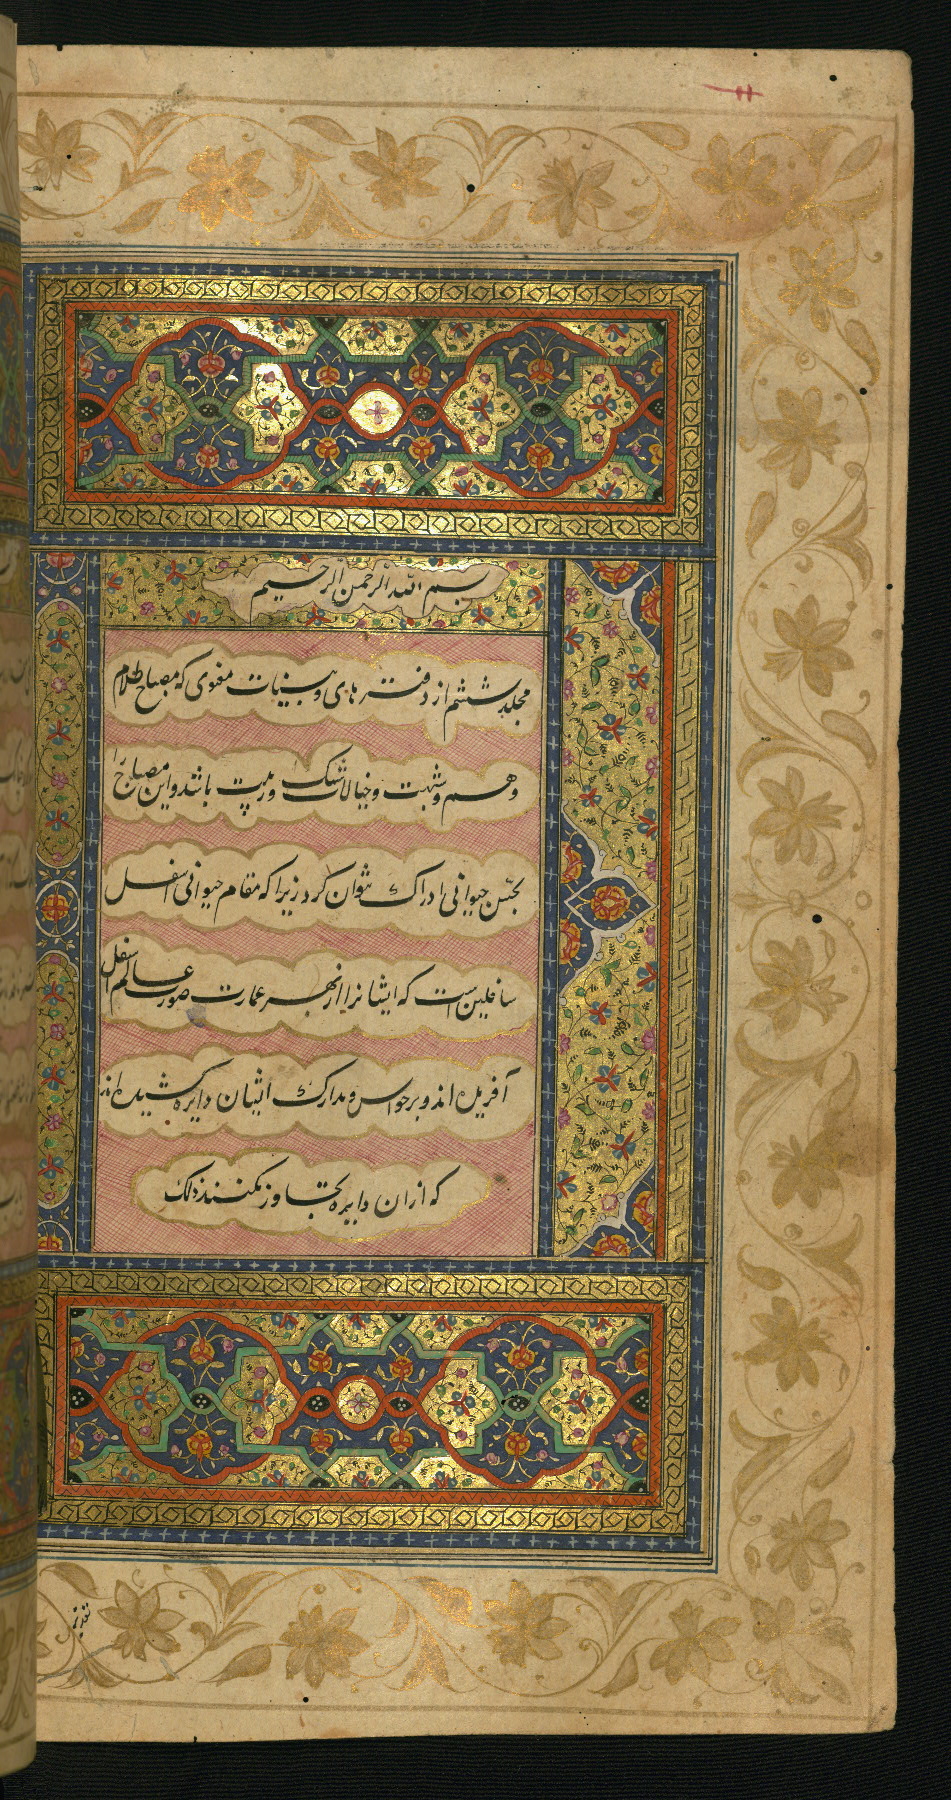 بسم الله الرحمن الرحیم
مجلد ششم از دفترهای و بینات معنوی که مصباح ظلام
وهم و شبهت و خیالات و شک و ریبت باشد و این مصباح را
بحس حیوانی ادراک نتوان کرد زیرا که مقام حیوانی اسفل
سافلین است که ایشانرا از بهر عمارت صورت عالم اسفل
آفریده اند و بر حواس و مدارک ایشان دایره کشیده اند
که از ان دایره تجاوز نکنند ذلک
تقدیر